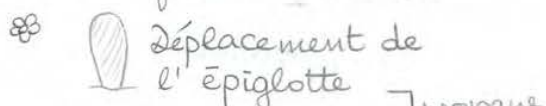 Déplacement de
l'épiglotte